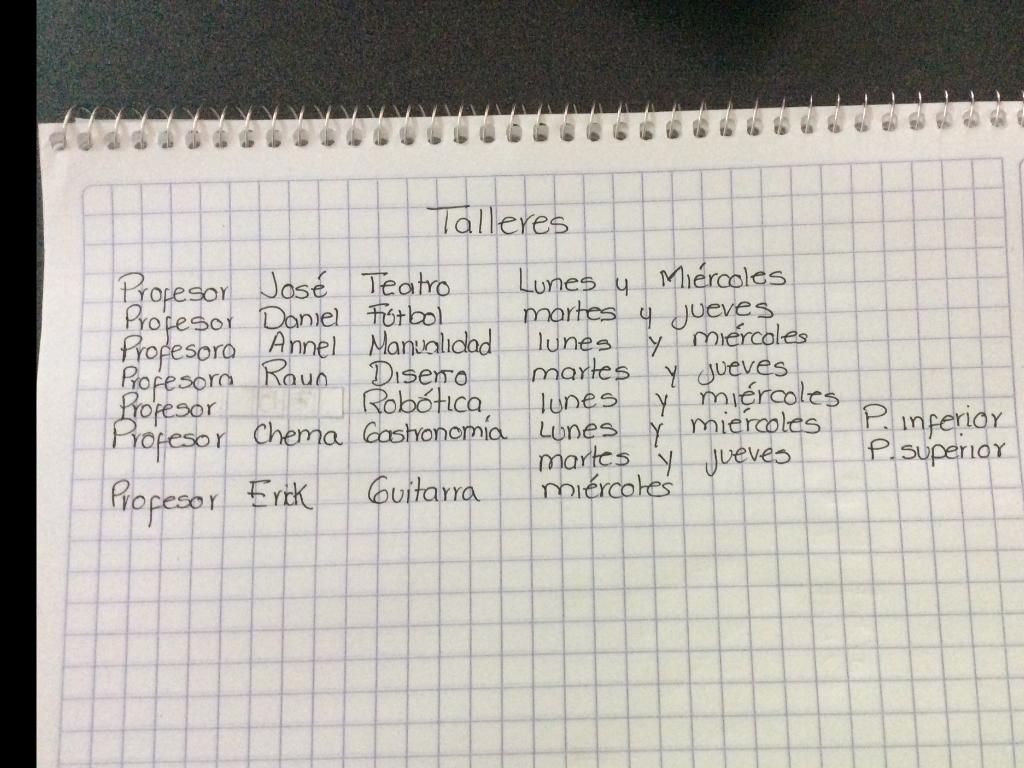 Talleres
Profesor José Teatro Lunes y Miércoles
Profesor Daniel Fútbol martes y jueves
Profesora Annel Manualidad lunes y miércoles
Profesora Raun Diseño martes y jueves
Profesor Robótica lunes y miércoles
Profesor Chema Gastronomía Lunes y miércoles P. inferior
martes y jueves P. superior
Profesor Erick Guitarra miércoles